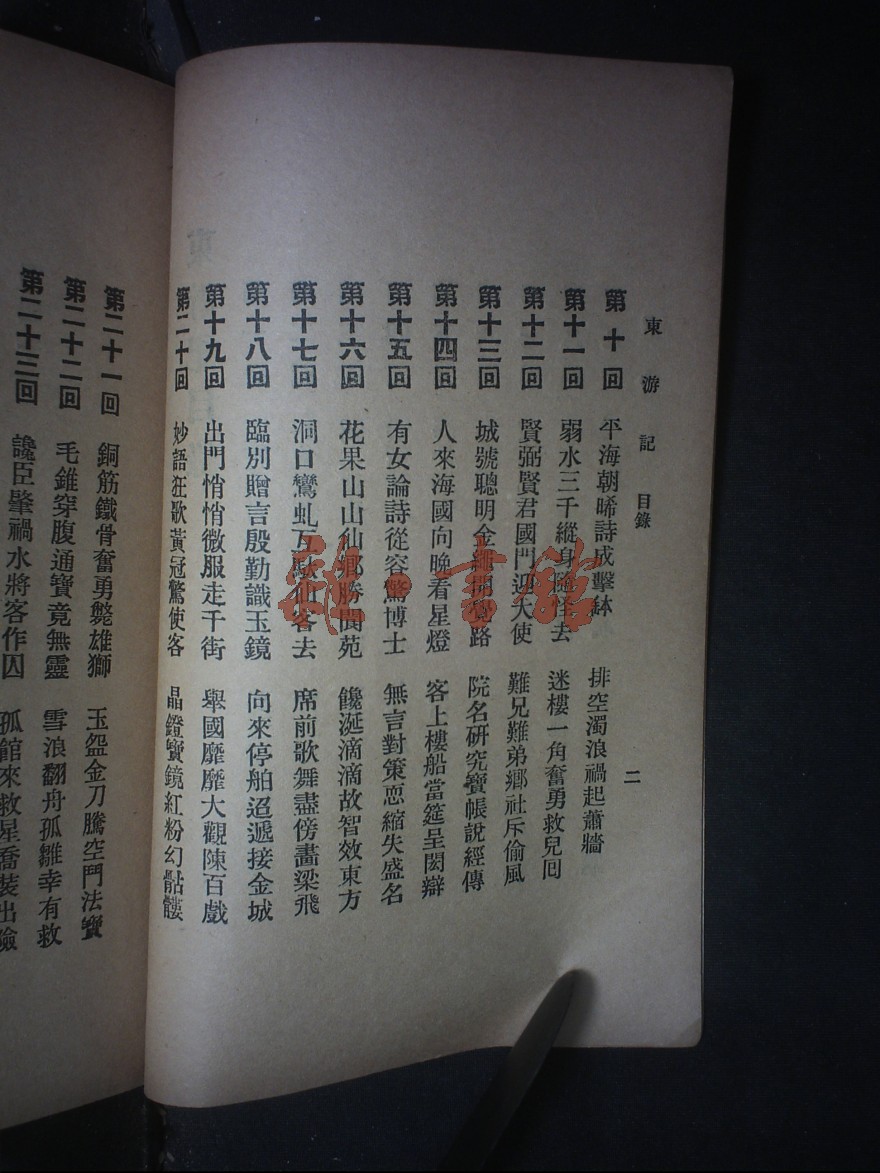 東游記 目錄
二
第十回 平海朝晞詩成擊鉢 排空濁浪禍起蕭牆
第十一回 弱水三千縱身隨怪去 迷樓一角奮勇救兒回
第十二回 賢弼賢君國門迎天使 難兄難弟鄉社斥偷風
第十三回 城號聰明金繩開覺路 院名研究寶帳說經傳
第十四回 人來海國向晚看星燈 客上樓船當筵呈閎辯
第十五回 有女論詩從容驚博士 無言對策恧縮失盛名
第十六回 花果山山仙鄉勝閬苑 饞涎滴滴故智效東方
第十七回 洞口鸞虬互馱仙客去 席前歌舞盡傍畵梁飛
第十八回 臨別贈言殷勤識玉鏡 向來停舶迢遞接金城
第十九回 出門悄悄微服走千街 舉國靡靡大觀陳百戲
第二十回 妙語狂歌黃冠驚使客 晶鐙寶鏡紅粉幻骷髏
第二十一回 銅筋鐵骨奮勇斃雄獅 玉盌金刀騰空鬥法寶
第二十二回 毛錐穿腹通寶竟無靈 雪浪翻舟孤雛幸有救
第二十三回 讒臣肇禍水將客作囚 孤館來救星喬裝出險
雅·書館